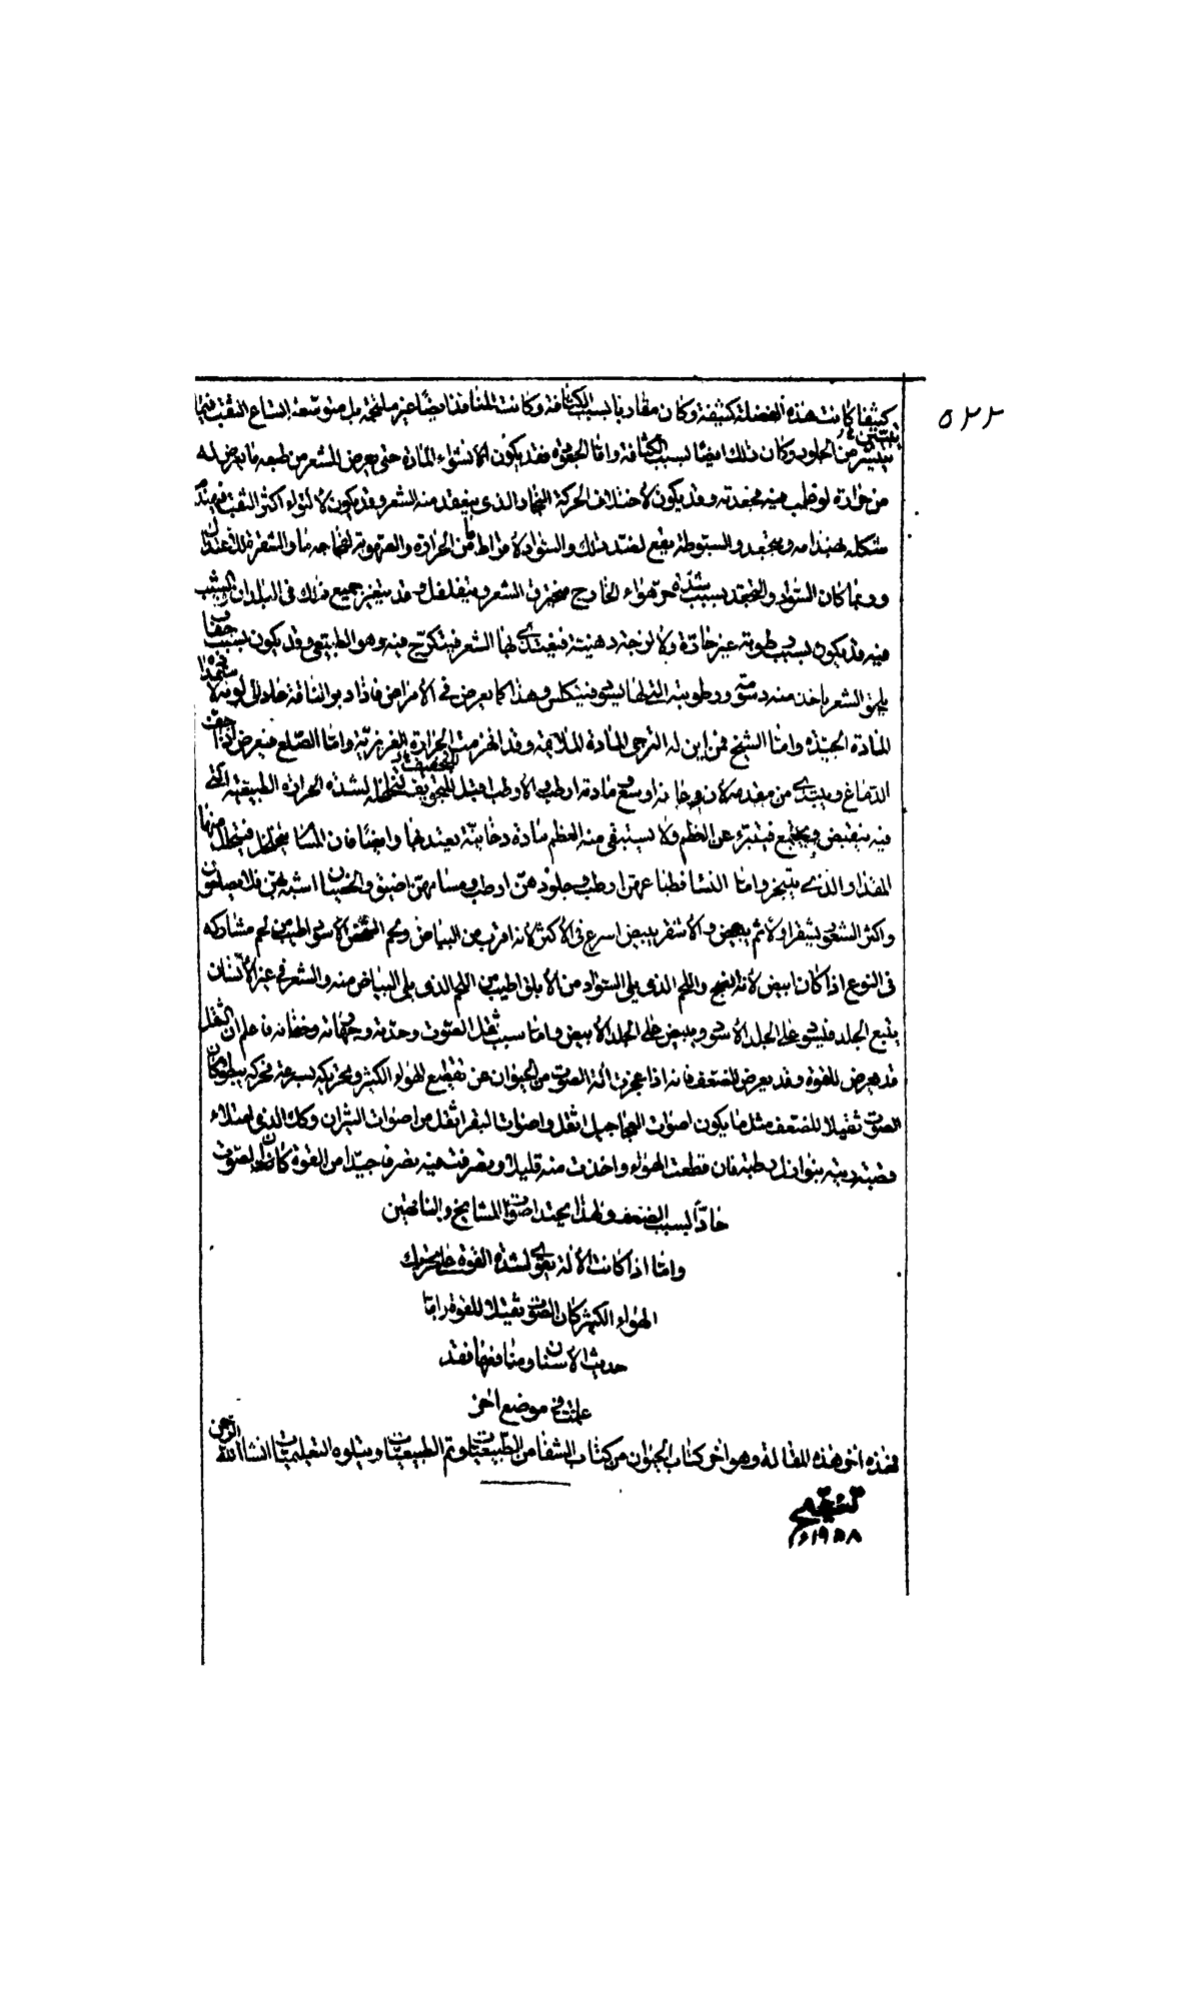 ٥٢٢
كثيفا كانت هذه الفضلة كثيفة وكان مقاديا بسبب الكثافة وكانت المنافذ ايضا غير ملتحمة بل متوسعة اتساع الثقب فيما
يتيسر من الجلود وكان ذلك ايضا لسبب الكثافة واما الجعودة فقد يكون لالتواء المادة حتى يعرض للشعر من طبعه ما يعرض له
من حرارة لو طلب فيه مجعدته وقد يكون لاختلاف الحركة البخار الذي ينعقد منه الشعر وقد يكون لالتواء اكثر الثقب
والسبوطة يقع لضد ذلك والسواد لافراط من الحرارة والصهوبة لفجاجة ما والشقرة
وربما كان السواد والتجعد بسبب شدة حر هواء الخارج فيحترق الشعر ويتفلفل وقد يتغير جميع ذلك في البلدان والشيب
فيه قد يكون بسبب رطوبة غير حادة ولا لزجة دهينة فيغتذي بها الشعر فيتكرج فيه وهو الطبيعي وقد يكون بسبب جفاف
يلحق الشعر ياخذ منه دسومته ورطوبته التي لها يسود فيتكلس وهذا كما يعرض في الامراض فاذا دبر الناقة عاد الى لونه
المادة الجيدة واما الشيخ فمن اين له الترجي للمادة الملايمة وقد انهزمت الحرارة الغريزية واما الصلع فيعرض
الدماغ ويبتدي من مقدمه لانه اوسع مادة ارطب والارطب اقبل للتجفيف لتخلخله لشدة الحرارة الطبيعية التي
فيه ينقبض ويجتمع فيتبرء عن العظم ولا يستبقي منه العظم مادة دخانية يعتد بها وايضا فان المسام يتخلخل فيتحلل منها
الغذاء والذي يتبخر واما النساء فطباعهن ارطب وجلودهن ارطب ومسامهن اضيق والخصيان اشبه بهن فلا يصلعون
واكثر الشعور يشقر اولا ثم يبيض والاشقر يبيض اسرع في الاكثر لانه اقرب من البياض ولحم الاسود اطيب من لحم مشاركه
في النوع اذا كان ابيض لانه انضج واللحم الذي يلي السواد من الابلق اطيب من اللحم الذي يلي البياض منه والشعر في غير الانسان
يتبع الجلد فيسود على الجلد الاسود ويبيض على الجلد الابيض واما سبب ثقل الصوت وحدته وجهارته وخفاته فاعلم ان الثقل
قد يعرض للقوة وقد يعرض للضعف فانه اذا عجزت الة الصوت من الحيوان عن تقطيع الهواء الكثير وتحريكه بسرعة فحركه ببطء كان
الصوت ثقيلا للضعف مثل ما يكون اصوات العجاجيل اثقل واصوات البقر اثقل من اصوات الثيران وكك الذي امتلاء
قصبة ريته بنوازل رطبة فان قطعت الهواء واخذت منه قليلا وتصرفت فيه تصرفا جيدا من القوة كان الصوت
حادا لسبب الضعف ولهذا يحتد اصوات المشايخ والناقهين
واما اذا كانت الالة يقوي لشدة القوة على تحريك
الهواء الكثير كان الصوت ثقيلا للقوة واما
حديث الاسنان ومنافعها فقد
علمت في موضع اخر
فهذه اخر هذه المقالة وهو اخر كتاب الحيوان من كتاب الشفا من الطبيعيات وتم الطبيعيات ويتلوه التعليميات انشاء الله الرحمن
تنقيح
١٩٥٨ء